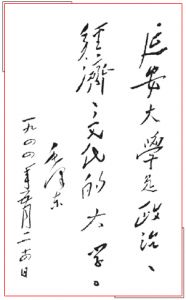 延安大學是政治、
經濟、文化的大學。
毛澤东
一九四四年五月二十四日